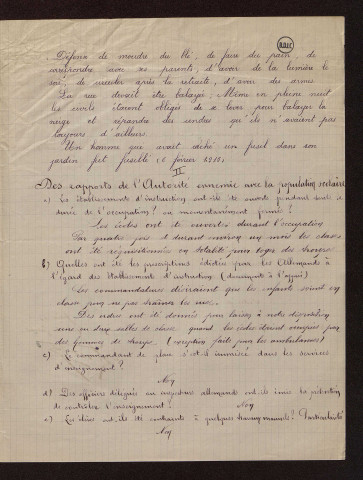 BDIC
Défense de moudre du blé, de faire des pains, de
correspondre avec ses parents, d'avoir de la lumière le
soir, de circuler après la retraite, d'avoir des armes
La rue devait être balayée. Même en pleine nuit
les civils étaient obligés de se lever pour balayer la
neige et répandre des cendres qu'ils n'avaient pas
toujours d'ailleurs
Un homme qui avait caché un fusil dans son
jardin fut fusillé (6 février 1915).
II
Des rapports de l'Autorité ennemie avec la population scolaire
a) Les établissements d'instruction ont-ils été ouverts pendant toute la
durée de l'occupation? ou momentanément fermés?
Les écoles ont été ouvertes durant l'occupation
Par quatre fois et durant environ un mois les classes
ont été réquisitionnées en totalité pour loger des troupes
b) Quelles ont été les prescriptions édictées par les Allemands à
l'égard des Etablissements d'instruction (documents à l'appui)
Les commandantures désiraient que les enfants soient en
classe pour ne pas traîner les rues.
Des ordres ont été donnés pour laisser à notre disposition
une ou deux salles de classe quand les écoles étaient occupées par
des hommes de troupe (exception faite pour les ambulances)
c) Le commandant de place s'est-il immiscé dans les services
d'enseignement?
Non
d) Des officiers délégués ou inspecteurs allemands ont-ils émis la prétention
de contrôler l'enseignement? Non
e) Les élèves ont-ils été contraints à quelques travaux manuels? Particularités
Non